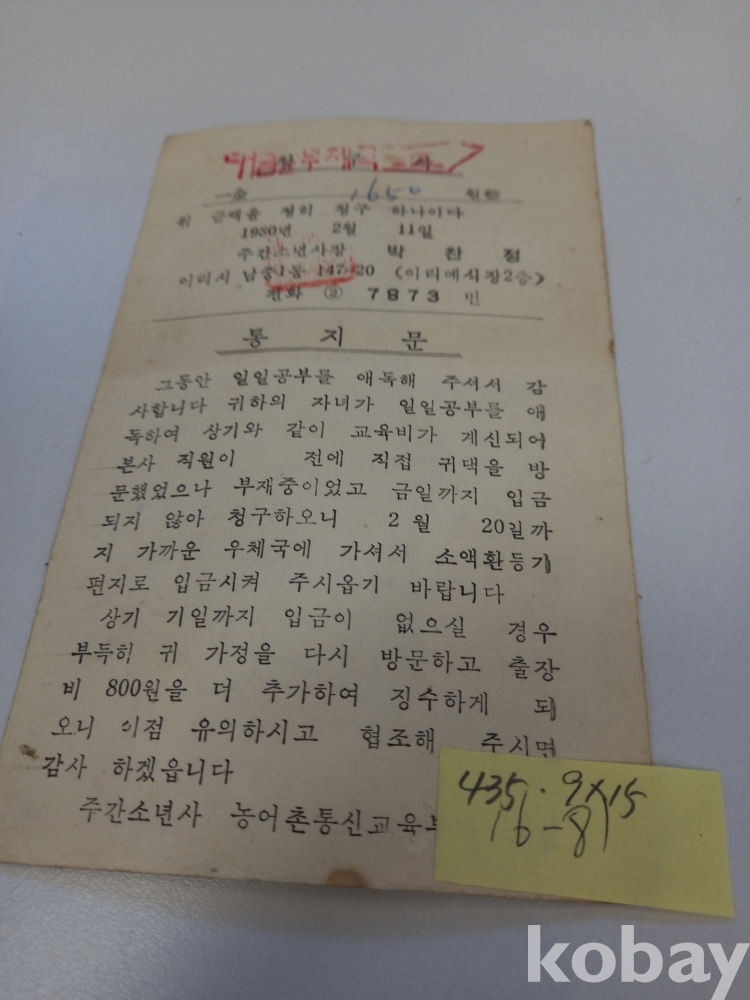 一金 1,650 원整
위 금액을 정히 청구 하나이다
1980년 2월 11일
주간소년사장 박찬정
이리시 남중1동 147-20 (이리예식장2층)
전화 ② 7873 번
통 지 문
그동안 일일공부를 애독해 주셔서 감
사합니다 귀하의 자녀가 일일공부를 애
독하여 상기와 같이 교육비가 계신되어
본사 직원이 전에 직접 귀댁을 방
문했었으나 부재중이었고 금일까지 입금
되지 않아 청구하오니 2월 20일까
지 가까운 우체국에 가셔서 소액환등기
편지로 입금시켜 주시옵기 바랍니다
상기 기일까지 입금이 없으실 경우
부득히 귀 가정을 다시 방문하고 출장
비 800원을 더 추가하여 징수하게 되
오니 이점 유의하시고 협조해 주시면
감사 하겠읍니다
주간소년사 농어촌통신교육부
435. 9x15
16-81
kobay